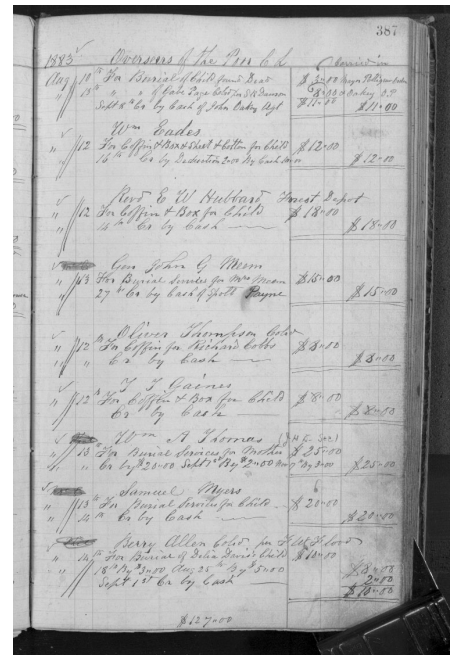 387
1883 Overseers of the Poor C L
Aug 10th For Burial of Child found Dead $ 3"00
" 15th " " of Gate Page Cold for S R Dawson 8"00 Oakey O P
Sept 8th Cr by Cash of John Oakey Agt $ 11"00 $ 11"00
Wm Eades
" 12 For Coffin & Box & Sheet & Cotton for Child $ 12"00
16th Cr by Deduction 2"00 By Cash $ 12"00
Revd E W Hubbard Forest Depot
" 12 For Coffin & Box for Child $ 18"00
14th Cr by Cash $ 18"00
Gen John G Meem
" 13 For Burial Services for Mrs Meem $ 15"00
27th Cr by Cash of Spott Payne $ 15"00
Oliver Thompson Cold
" 12th For Coffin for Richard Cobbs $ 8"00
" " Cr by Cash $ 8"00
T T Gaines
" 12th For Coffin & Box for Child $ 8"00
Cr by Cash $ 8"00
Wm A Thomas
" 13 For Burial Services for Mother $ 25"00
" " Cr by $ 20"00 Sept 1st By $ 2"00 By 3"00 $ 25"00
Samuel Myers
" 13th For Burial Services for Child $ 20"00
" 14th Cr by Cash $ 20"00
Berry Allen Cold for
" 14th For Burial of Delia Davis's Child $ 10"00
18th By $ 3"00 Aug 25th By $ 5"00 $ 8"00
Sept 1st Cr by Cash 2"00
$ 10"00
$ 127"00